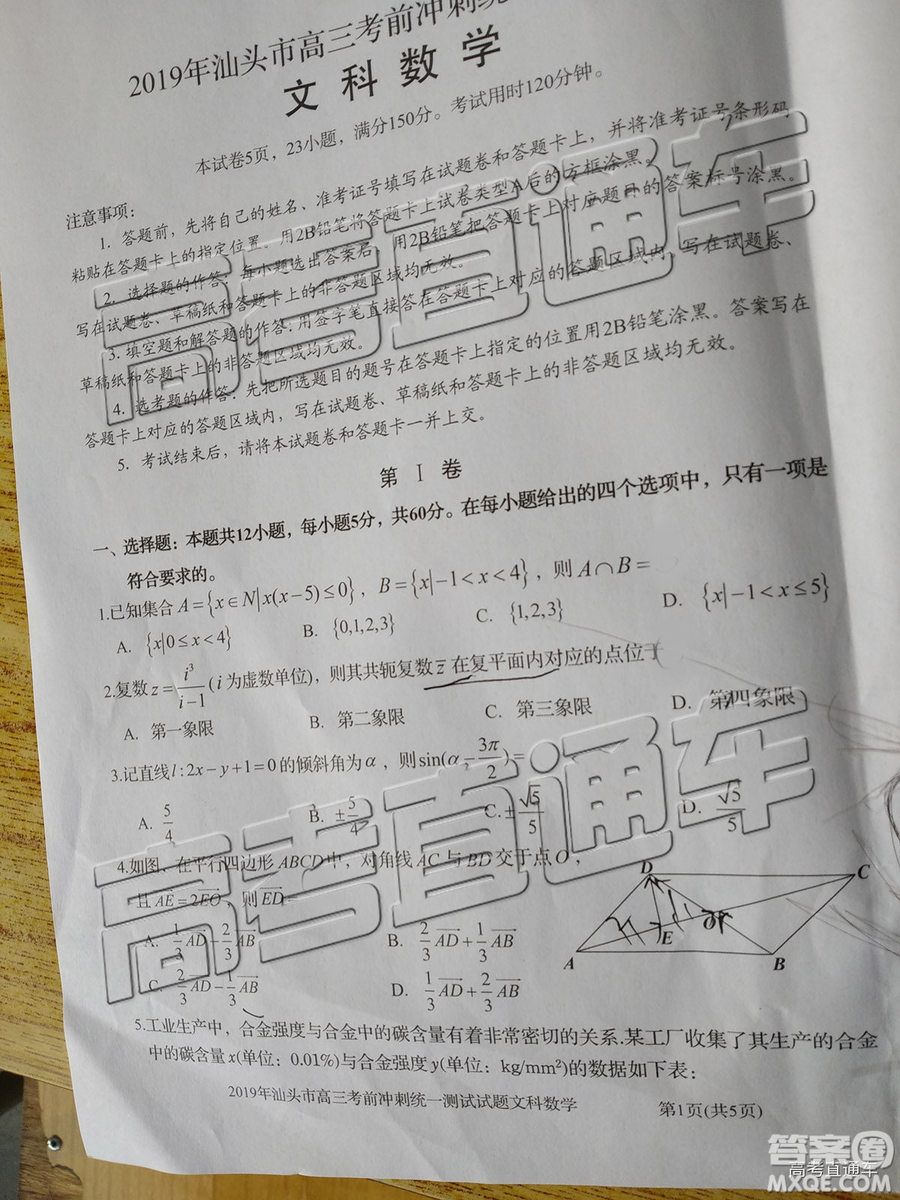 2019年汕头市高三考前冲刺统
文科数学
本试卷5页，23小题，满分150分。考试用时120分钟。
注意事项：
1．答题前，先将自己的姓名、准考证号填写在试题卷和答题卡上，并将准考证号条形码
粘贴在答题卡上的指定位置。用2B铅笔将答题卡上试卷类型A后的方框涂黑。
2．选择题的作答：每小题选出答案后，用2B铅笔把答题卡上对应题目的答案标号涂黑。
写在试题卷、草稿纸和答题卡上的非答题区域均无效。
3．填空题和解答题的作答：用签字笔直接答在答题卡上对应的答题区域内，写在试题卷、
草稿纸和答题卡上的非答题区域均无效。
4．选考题的作答：先把所选题目的题号在答题卡上指定的位置用2B铅笔涂黑。答案写在
答题卡上对应的答题区域内，写在试题卷、草稿纸和答题卡上的非答题区域均无效。
5．考试结束后，请将本试题卷和答题卡一并上交。
第 I 卷
一、选择题：本题共12小题，每小题5分，共60分。在每小题给出的四个选项中，只有一项是
符合要求的。
1.已知集合 A={x∈N|x(x−5)≤0}，B={x|−1<x<4}，则 A∩B=
A. {x|0≤x<4} B. {0,1,2,3} C. {1,2,3} D. {x|−1<x≤5}
2.复数 z=i³/(i−1)(i 为虚数单位)，则其共轭复数 z̅ 在复平面内对应的点位于
A. 第一象限 B. 第二象限 C. 第三象限 D. 第四象限
3.记直线 l:2x−y+1=0 的倾斜角为 α，则 sin(α−3π/2)=
A. 5/4 B. ±5/4 C. ±√5/5 D. √5/5
4.如图，在平行四边形 ABCD 中，对角线 AC 与 BD 交于点 O，
且 AE=2EO，则 ED=
A. 1/3 AD−2/3 AB B. 2/3 AD+1/3 AB
C. 2/3 AD−1/3 AB D. 1/3 AD+2/3 AB
D C
O
E
A B
5.工业生产中，合金强度与合金中的碳含量有着非常密切的关系.某工厂收集了其生产的合金
中的碳含量 x(单位：0.01%)与合金强度 y(单位：kg/mm²)的数据如下表：
2019年汕头市高三考前冲刺统一测试试题文科数学 第1页(共5页)
高考直通车
高考直通车
答案圈
高考直通车
MXQE.COM